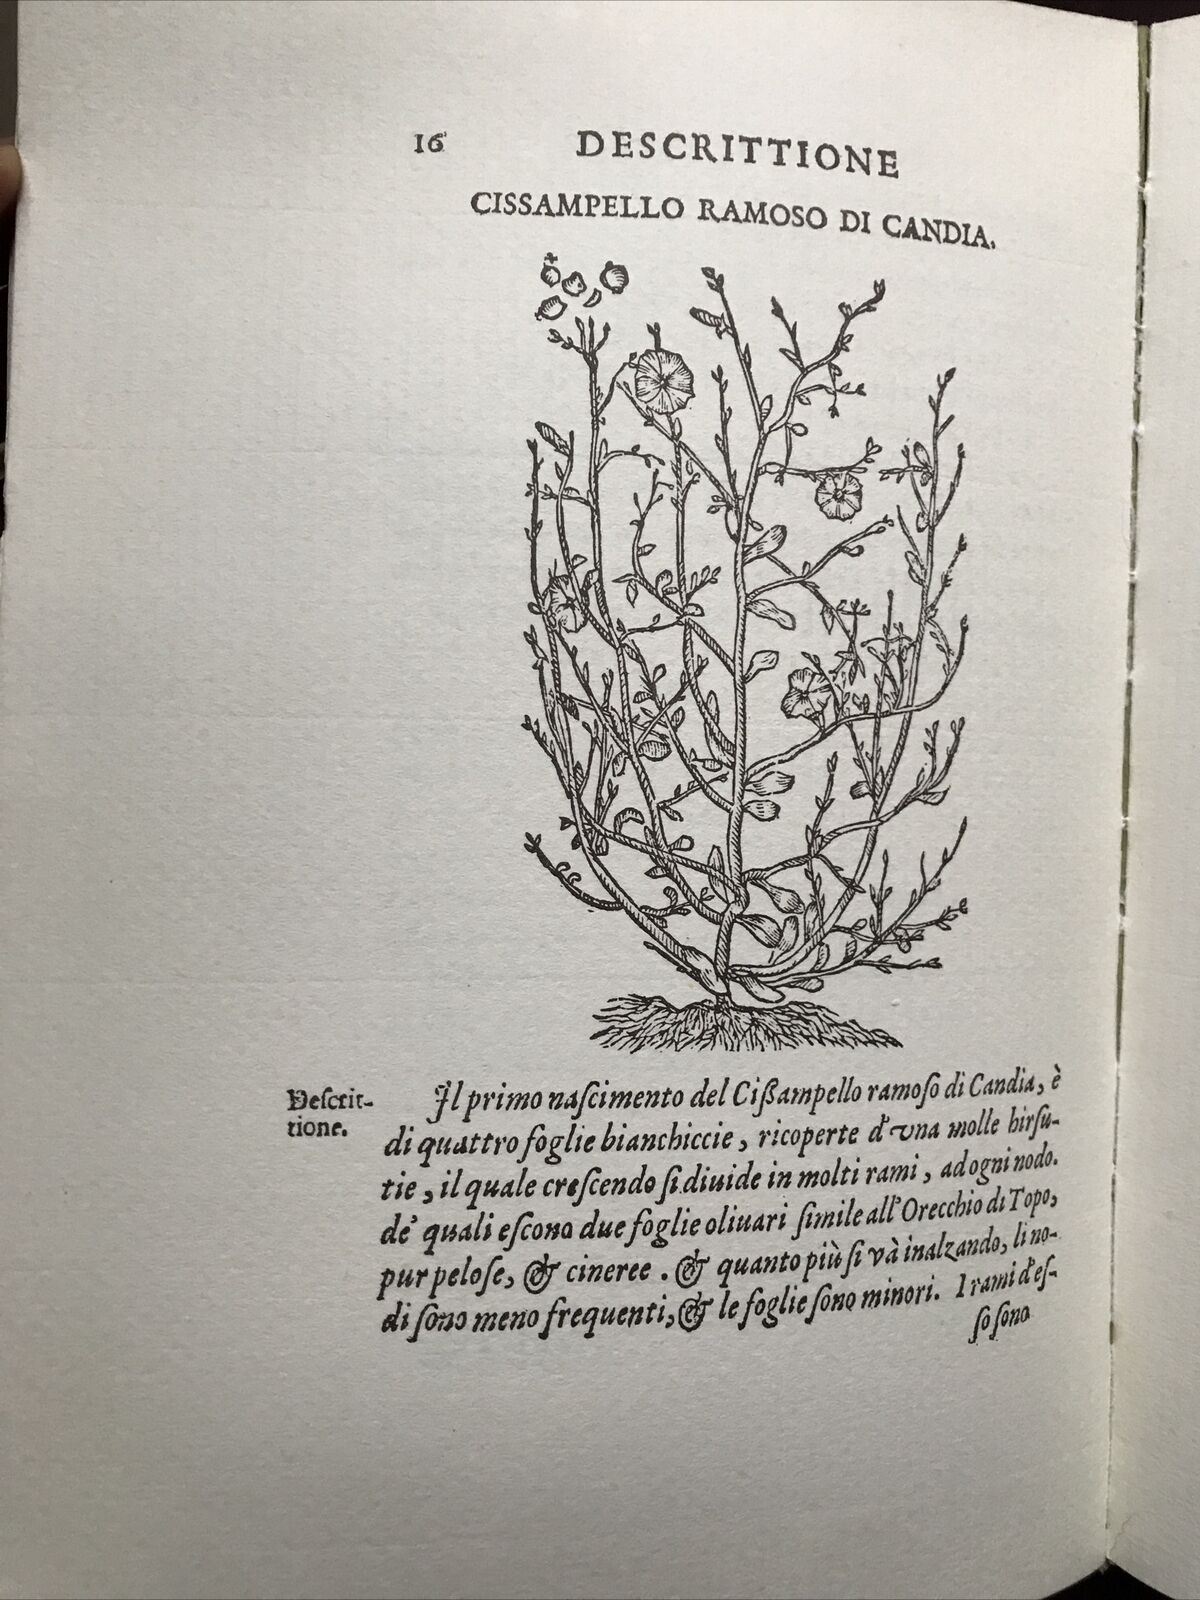 16 DESCRITTIONE
CISSAMPELLO RAMOSO DI CANDIA.
Deſcrit-
tione.
Il primo naſcimento del Cißampello ramoſo di Candia, è
di quattro foglie bianchiccie, ricoperte d'vna molle hirſu-
tie, il quale creſcendo ſi diuide in molti rami, ad ogni nodo.
de' quali eſcono due foglie oliuari ſimile all'Orecchio di Topo,
pur peloſe, & cineree. & quanto più ſi và inalzando, li no-
di ſono meno frequenti, & le foglie ſono minori. I rami d'eſ-
ſo ſono